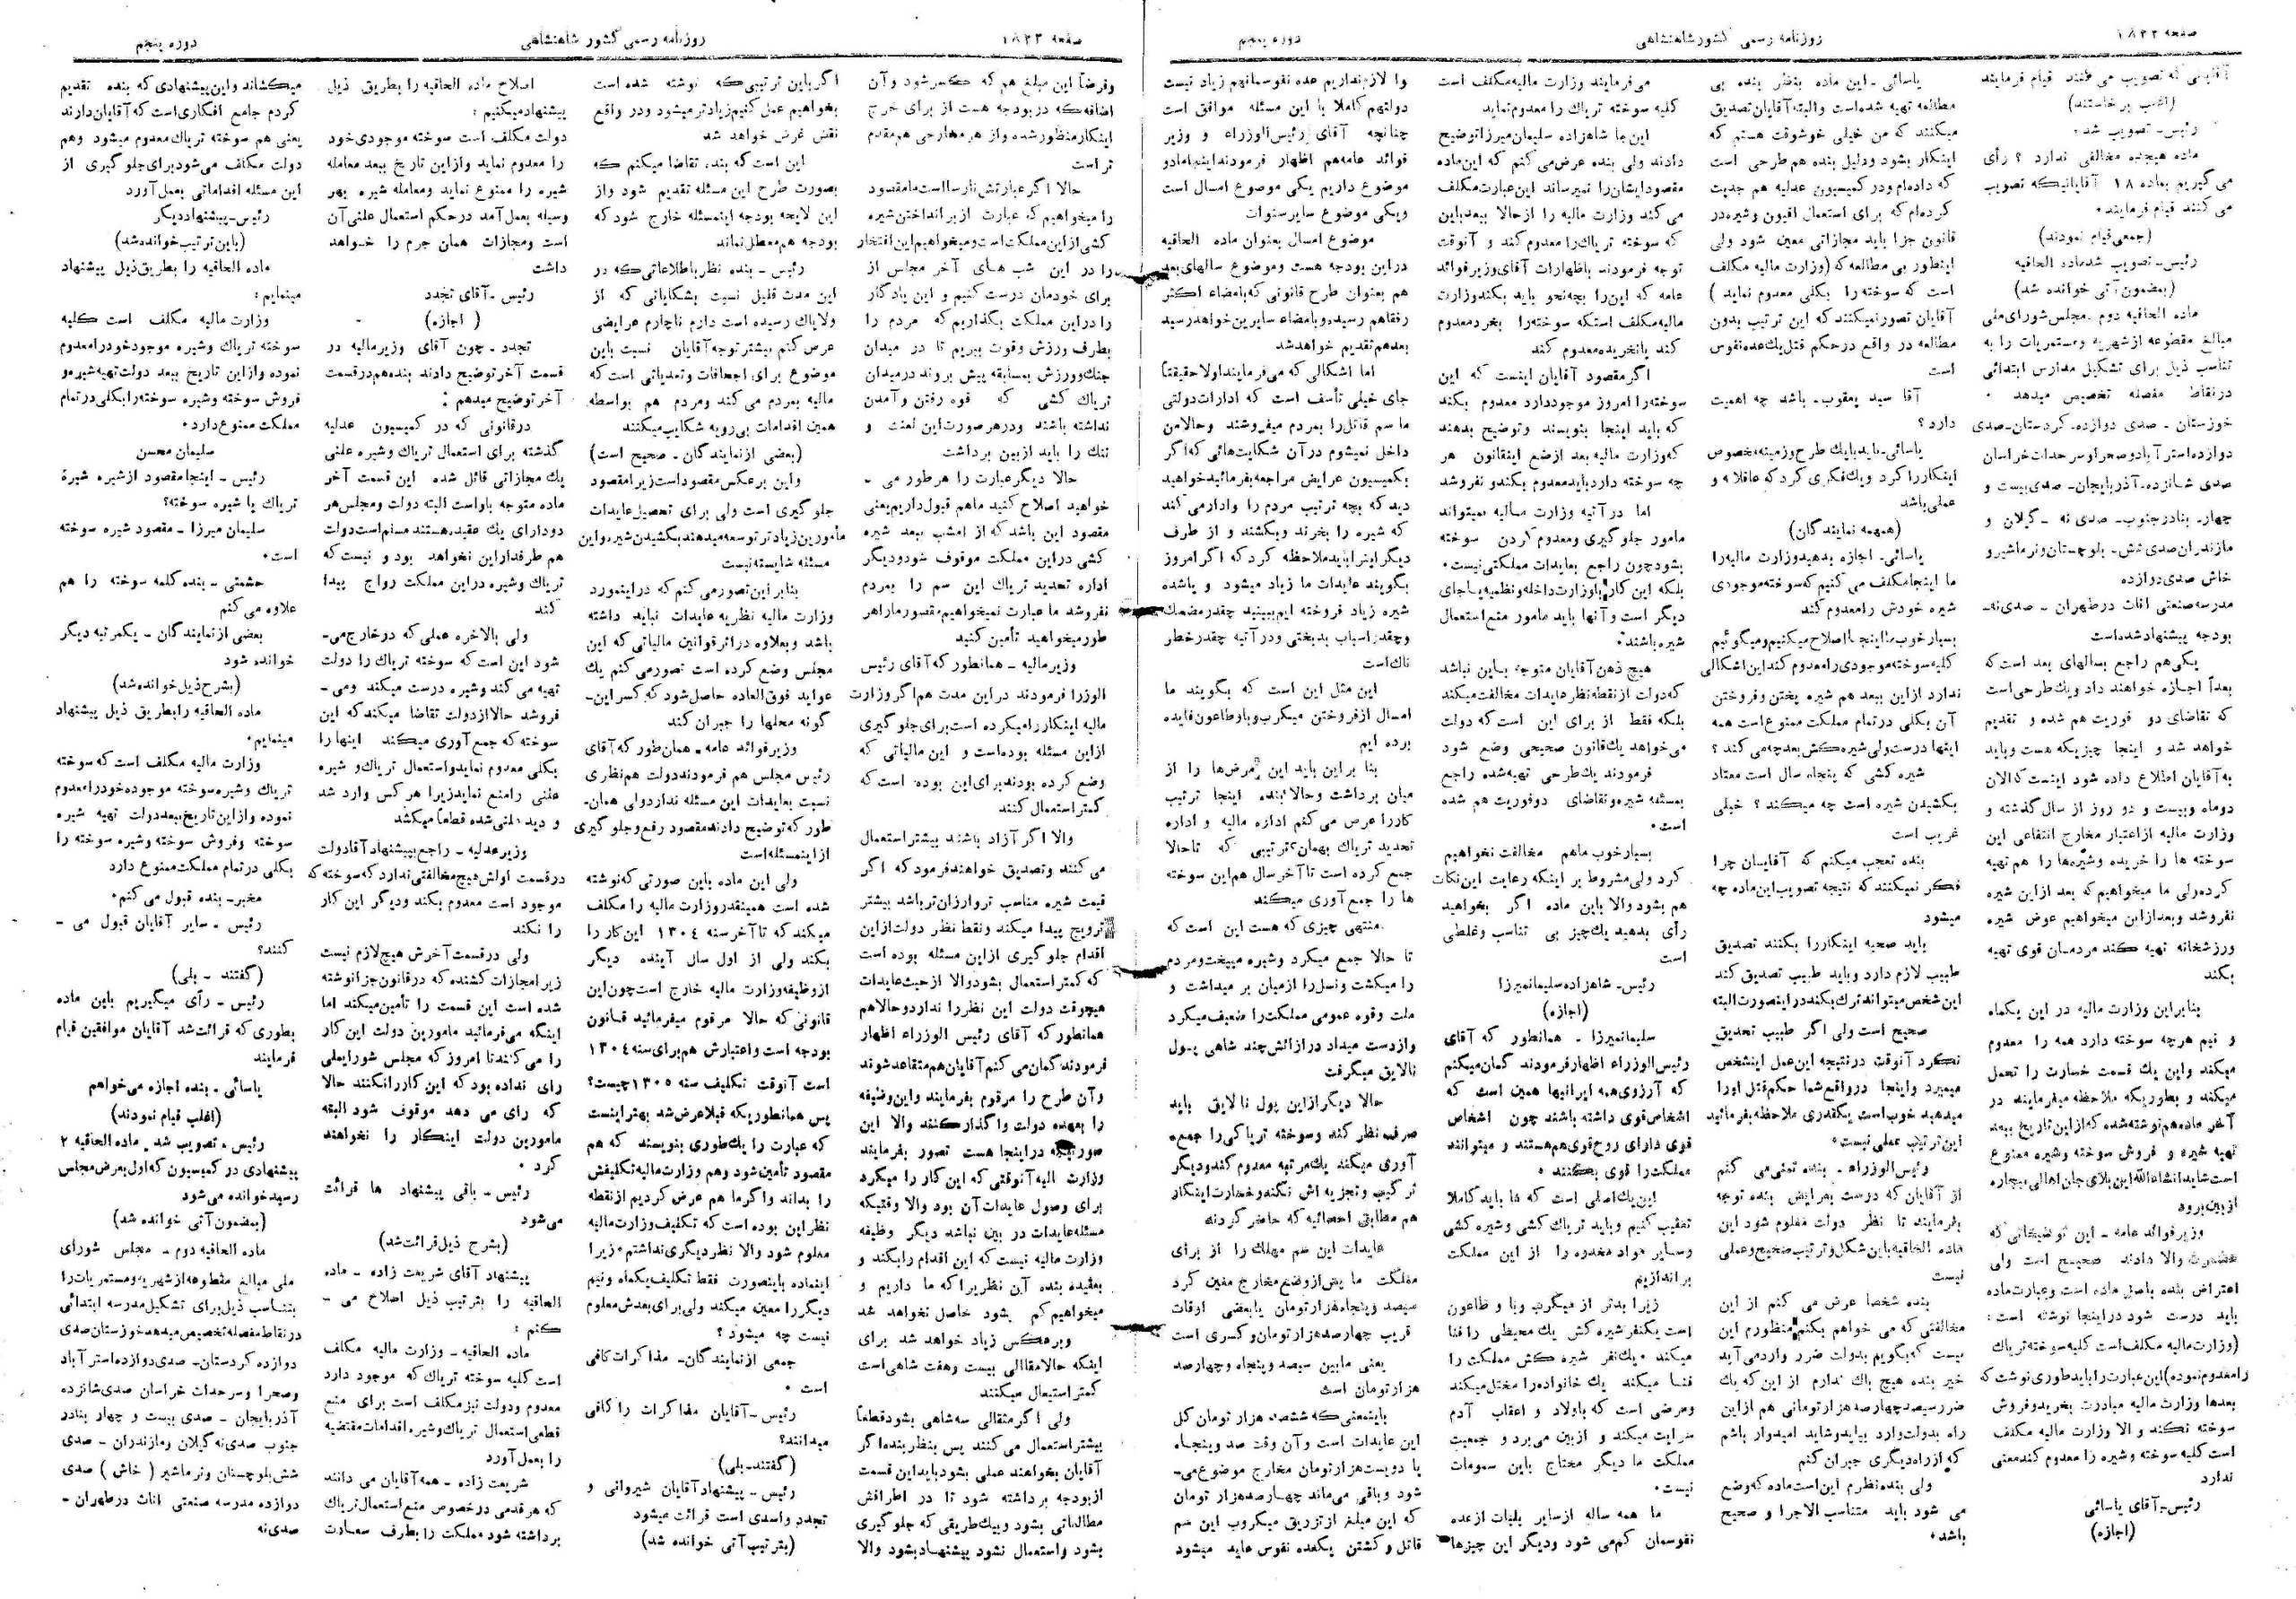 صفحه ۱۸۲۲
روزنامه رسمی کشور شاهنشاهی
دوره پنجم
آقایانی که تصویب می کنند قیام فرمایند
(اغلب برخاستند)
رئیس- تصویب شد.
ماده هیجده مخالفی ندارد ؟ رأی
می گیریم بماده ۱۸ آقایانیکه تصویب
می کنند قیام فرمایند.
(جمعی قیام نمودند)
رئیس- تصویب شد ماده الحاقیه
(بمضمون آتی خوانده شد)
ماده الحاقیه دوم . مجلس شورای ملی
مبالغ مقطوعه از شهریه و مستمریات را به
تناسب ذیل برای تشکیل مدارس ابتدائی
در نقاط مفصله تخصیص میدهد .
خوزستان - صدی دوازده- کردستان- صدی
دوازده استرآباد و صحرا و سرحدات خراسان
صدی شانزده- آذربایجان- صدی بیست و
چهار- بنادر جنوب- صدی نه - گیلان و
مازندران صدی شش- بلوچستان و نرماشیر و
خاش صدی دوازده
مدرسه صنعتی اناث در طهران - صدی نه-
بودجه پیشنهاد شده است
یکی هم راجع بسالهای بعد است که
بعداً اجازه خواهند داد و یك طرحی است
که تقاضای دو فوریت هم شده و تقدیم
خواهد شد و اینجا چیزیکه هست و باید
به آقایان اطلاع داده شود اینست که الان
دو ماه و بیست و دو روز از سال گذشته و
وزارت مالیه از اعتبار مخارج انتفاعی این
سوخته ها را خریده و شیره ها را هم تهیه
کرده ولی ما میخواهیم که بعد از این شیره
نفروشد و بعد از این میخواهیم عوض شیره
ورزشخانه تهیه کند مردمان قوی تهیه
بکند
بنابر این وزارت مالیه در این یکماه
و نیم هرچه سوخته دارد همه را معدوم
میکند و این یك قسمت خسارت را تحمل
میکند و بطوریکه ملاحظه میفرمایند در
آخر ماده هم نوشته شده که از این تاریخ ببعد
تهیه شیره و فروش سوخته و شیره ممنوع
است شاید انشاءالله این بلای جان اهالی بیچاره
از بین برود
وزیر فوائد عامه - این توضیحاتی که
حضرت والا دادند صحیح است ولی
اعتراض بنده باصل ماده است و عبارت ماده
باید درست شود در اینجا نوشته است :
(وزارت مالیه مکلف است کلیه سوخته تریاك
را معدوم نموده) این عبارت را باید طوری نوشت که
بعدها وزارت مالیه مبادرت بخرید و فروش
سوخته نکند و الا وزارت مالیه مکلف
است کلیه سوخته و شیره را معدوم کند معنی
ندارد
رئیس- آقای یاسائی
(اجازه)
یاسائی - این ماده بنظر بنده بی
مطالعه تهیه شده است و البته آقایان تصدیق
میکنند که من خیلی خوشوقت هستم که
اینکار بشود و دلیل بنده هم طرحی است
که داده ام و در کمیسیون عدلیه هم جدیت
کرده ام که برای استعمال افیون و شیره در
قانون جزا باید مجازاتی معین شود ولی
اینطور بی مطالعه که (وزارت مالیه مکلف
است که سوخته را بکلی معدوم نماید )
آقایان تصور نمیکنند که این ترتیب بدون
مطالعه در واقع در حکم قتل یك عده نفوس
است
آقا سید یعقوب- باشد چه اهمیت
دارد ؟
یاسائی- باید با یك طرح و زمینه مخصوص
اینکار را کرد و یك فکری کرد که عاقلانه و
عملی باشد
(همهمه نمایندگان)
یاسائی- اجازه بدهید وزارت مالیه را
ما اینجا مکلف می کنیم که سوخته موجودی
شیره خودش را معدوم کند
بسیار خوب ما اینجا اصلاح میکنیم و میگوئیم
کلیه سوخته موجودی را معدوم کند این اشکالی
ندارد از این ببعد هم شیره پختن و فروختن
آن بکلی در تمام مملکت ممنوع است همه
اینها درست ولی شیره کش بعد چه می کند ؟
شیره کشی که پنجاه سال است معتاد
بکشیدن شیره است چه میکند ؟ خیلی
غریب است
بنده تعجب میکنم که آقایان چرا
فکر نمیکنند که نتیجه تصویب این ماده چه
میشود
باید صحیه اینکار را بکنند تصدیق
طبیب لازم دارد و باید طبیب تصدیق کند
این شخص میتواند ترك بکند در اینصورت البته
صحیح است ولی اگر طبیب تصدیق
نکرد آنوقت در نتیجه این عمل اینشخص
میمیرد و اینجا در واقع شما حکم قتل او را
میدهید خوب است یکقدری ملاحظه بفرمائید
این ترتیب عملی نیست.
رئیس الوزراء - بنده تمنی می کنم
از آقایان که درست بعرایض بنده توجه
بفرمایند تا نظر دولت معلوم شود این
ماده الحاقیه باین شکل و ترتیب صحیح و عملی
نیست
بنده شخصا عرض می کنم از این
مخالفتی که می خواهم بکنم منظورم این
نیست که بگویم بدولت ضرر وارد می آید
خیر بنده هیچ باك ندارم از این که یك
ضرر سیصد چهار صد هزار تومانی هم از این
راه بدولت وارد بیاید و شاید امیدوار باشم
که از راه دیگری جبران کنم
ولی بنده نظرم این است ماده که وضع
می شود باید متناسب الاجرا و صحیح
باشد.
می فرمایند وزارت مالیه مکلف است
کلیه سوخته تریاك را معدوم نماید
این ها شاهزاده سلیمان میرزا توضیح
دادند ولی بنده عرض می کنم که این ماده
مقصود ایشان را نمیرساند این عبارت مکلف
می کند وزارت مالیه را از حالا ببعد باین
که سوخته تریاك را معدوم کند و آنوقت
توجه فرمودند باظهارات آقای وزیر فوائد
عامه که این را بچه نحو باید بکند وزارت
مالیه مکلف است که سوخته را بخرد معدوم
کند یا نخریده معدوم کند
اگر مقصود آقایان اینست که این
سوخته را امروز موجود دارد معدوم بکند
که باید اینجا بنویسند و توضیح بدهند
که وزارت مالیه بعد از وضع اینقانون هر
چه سوخته دارد باید معدوم بکند و نفروشد
اما در آتیه وزارت مالیه نمیتواند
مامور جلوگیری و معدوم کردن سوخته
بشود چون راجع بعایدات مملکتی نیست.
بلکه این کار با وزارت داخله و نظمیه یا جای
دیگر است و آنها باید مامور منع استعمال
شیره باشند.
هیچ ذهن آقایان متوجه باین نباشد
که دولت از نقطه نظر عایدات مخالفت میکند
بلکه فقط از برای این است که دولت
می خواهد یك قانون صحیحی وضع شود
فرمودند یك طرحی تهیه شده راجع
بمسئله شیره و تقاضای دو فوریت هم شده
است.
بسیار خوب ما هم مخالفت نخواهیم
کرد ولی مشروط بر اینکه رعایت این نکات
هم بشود والا باین ماده اگر بخواهید
رأی بدهید یك چیز بی تناسب و غلطی
است
رئیس- شاهزاده سلیمانمیرزا
(اجازه)
سلیمانمیرزا - همانطور که آقای
رئیس الوزراء اظهار فرمودند گمان میکنم
که آرزوی همه ایرانیها همین است که
اشخاص قوی داشته باشند چون اشخاص
قوی دارای روح قوی هم هستند و میتوانند
مملکت را قوی بکنند .
این یك اصلی است که ما باید کاملا
تعقیب کنیم و باید تریاك کشی و شیره کشی
و سایر مواد مخدره را از این مملکت
براندازیم
زیرا بدتر از میکرب وبا و طاعون
است یکنفر شیره کش یك محیطی را فنا
میکند . یك نفر شیره کش مملکت را
فنا میکند یك خانواده را مختل میکند
و مرضی است که باولاد و اعقاب آدم
سرایت میکند و از بین می برد و جمعیت
مملکت ما دیگر محتاج باین سمومات
نیست.
ما همه ساله از سایر بلیات از عده
نفوسمان کم می شود و دیگر این چیزها
را لازم نداریم عده نفوسمانهم زیاد نیست
دولتهم کاملا با این مسئله موافق است
چنانچه آقای رئیس الوزراء و وزیر
فوائد عامه هم اظهار فرمودند اینجا ما دو
موضوع داریم یکی موضوع امسال است
و یکی موضوع سایر سنوات
موضوع امسال بعنوان ماده الحاقیه
در این بودجه هست و موضوع سالهای بعد
هم بعنوان طرح قانونی که بامضاء اکثر
رفقا هم رسیده و بامضاء سایرین خواهد رسید
بعد هم تقدیم خواهد شد
اما اشکالی که می فرمایند اولا حقیقتاً
جای خیلی تأسف است که ادارات دولتی
ما سم قاتل را بمردم میفروشند و حالا من
داخل نمیشوم در آن شکایت هائی که اگر
بکمیسیون عرایض مراجعه بفرمائید خواهید
دید که بچه ترتیب مردم را وادار می کند
که شیره را بخرند و بکشند و از طرف
دیگر اینرا باید ملاحظه کرد که اگر امروز
بگویند عایدات ما زیاد میشود و یا شده
شیره زیاد فروخته ایم ببینید چقدر مضحك
و چقدر اسباب بدبختی و در آتیه چقدر خطر
ناك است
این مثل این است که بگویند ما
امسال از فروختن میکرب و با و طاعون فایده
برده ایم
بنا بر این باید این مرض ها را از
میان برداشت و حالا بنده اینجا ترتیب
کار را عرض می کنم اداره مالیه و اداره
تحدید تریاك بهمان ترتیبی که تا حالا
جمع کرده است تا آخر سال هم این سوخته
ها را جمع آوری میکند
منتهی چیزی که هست این است که
تا حالا جمع میکرد و شیره میپخت و مردم
را میکشت و نسل را از میان بر میداشت و
ملت و قوه عمومی مملکت را ضعیف میکرد
و از دست میداد در ازائش چند شاهی پول
نالایق میگرفت
حالا دیگر از این پول نالایق باید
صرف نظر کند و سوخته تریاکی را جمع
آوری میکند یك مرتبه معدوم کند و دیگر
ترکیب و تجزیه اش نکند و خسارت اینکار
هم مطابق احصائیه که حاضر کردند
عایدات این سم مهلك را از برای
مملکت ما پس از وضع مخارج معین کرد
سیصد و پنجاه هزار تومان یا بعضی اوقات
قریب چهار صد هزار تومان و کسری است
یعنی مابین سیصد و پنجاه و چهار صد
هزار تومان است
باینمعنی که ششصد هزار تومان کل
این عایدات است و آن وقت صد و پنجاه
یا دویست هزار تومان مخارج موضوع می-
شود و باقی می ماند چهار صد هزار تومان
که این مبلغ از تزریق میکروب این سم
قاتل و کشتن یکعده نفوس عاید میشود
صفحه ۱۸۲۳
روزنامه رسمی کشور شاهنشاهی
دوره پنجم
و فرضاً این مبلغ هم که کسر شود و آن
اضافه که در بودجه هست از برای خرج
اینکار منظور شده و از هر مخارجی هم مقدم
تر است
حالا اگر عبارتش نارسا است ما مقصود
را میخواهیم که عبارت از بر انداختن شیره
کشی از این مملکت است و میخواهیم این افتخار
را در این شب های آخر مجلس از
برای خودمان درست کنیم و این یادگار
را در این مملکت بگذاریم که مردم را
بطرف ورزش و قوت ببریم تا در میدان
جنك و ورزش بمسابقه پیش بروند در میدان
تریاك کشی که قوه رفتن و آمدن
نداشته باشند و در هر صورت این لعنت و
ننك را باید از بین برداشت
حالا دیگر عبارت را هر طور می -
خواهید اصلاح کنید ما هم قبول داریم یعنی
مقصود این باشد که از امشب ببعد شیره
کشی در این مملکت موقوف شود و دیگر
اداره تحدید تریاك این سم را بمردم
نفروشد ما عبارت نمیخواهیم مقصود ما را هر
طور میخواهید تأمین کنید
وزیر مالیه - همانطور که آقای رئیس
الوزرا فرمودند در این مدت هم اگر وزارت
مالیه اینکار را میکرده است برای جلوگیری
از این مسئله بوده است و این مالیاتی که
وضع کرده بودند برای این بوده است که
کمتر استعمال کنند
والا اگر آزاد باشند بیشتر استعمال
می کنند و تصدیق خواهند فرمود که اگر
قیمت شیره مناسب تر و ارزان تر باشد بیشتر
ترویج پیدا میکند و نقطه نظر دولت از این
اقدام جلوگیری از این مسئله بوده است
که کمتر استعمال بشود والا از حیث عایدات
هیچوقت دولت این نظر را ندارد و حالا هم
همانطور که آقای رئیس الوزراء اظهار
فرمودند گمان می کنم آقایان هم متقاعد شوند
و آن طرح را مرقوم بفرمایند و این وظیفه
را بعهده دولت واگذار کنند والا این
صورتیکه در اینجا هست تصور بفرمایند
وزارت مالیه آنوقتی که این کار را میکرد
برای وصول عایدات آن بود والا وقتیکه
مسئله عایدات در بین نباشد دیگر وظیفه
وزارت مالیه نیست که این اقدام را بکند و
بعقیده بنده آن نظریرا که ما داریم و
میخواهیم کم بشود حاصل نخواهد شد
و بر عکس زیاد خواهد شد برای
اینکه حالا مثقالی بیست و هفت شاهی است
کمتر استعمال میکنند
ولی اگر مثقالی سه شاهی بشود قطعاً
بیشتر استعمال می کنند پس بنظر بنده اگر
آقایان بخواهند عملی بشود باید این قسمت
از بودجه برداشته شود تا در اطرافش
مطالعاتی بشود و بیك طریقی که جلوگیری
بشود و استعمال نشود پیشنهاد بشود والا
اگر باین ترتیبی که نوشته شده است
بخواهیم عمل کنیم زیادتر میشود و در واقع
نقض غرض خواهد شد
این است که بنده تقاضا میکنم که
بصورت طرح این مسئله تقدیم شود و از
این لایحه بودجه اینمسئله خارج شود که
بودجه هم معطل نماند
رئیس - بنده نظر باطلاعاتی که در
این مدت قلیل نسبت بشکایاتی که از
ولایات رسیده است دارم ناچارم عرایضی
عرض کنم بیشتر توجه آقایان نسبت باین
موضوع برای اجحافات و تعدیاتی است که
مالیه بمردم می کند و مردم هم بواسطه
همین اقدامات بی رویه شکایت میکنند
(بعضی از نمایندگان - صحیح است)
و این بر عکس مقصود است زیرا مقصود
جلوگیری است ولی برای تحصیل عایدات
مأمورین زیادتر توسعه میدهند بکشیدن شیره و این
مسئله شایسته نیست
بنابر این تصور می کنم که در اینمورد
وزارت مالیه نظر به عایدات نباید داشته
باشد و بعلاوه در اثر قوانین مالیاتی که این
مجلس وضع کرده است تصور می کنم یك
عواید فوق العاده حاصل شود که کسر این-
گونه محلها را جبران کند
وزیر فوائد عامه - همان طور که آقای
رئیس مجلس هم فرمودند دولت هم نظری
نسبت بعایدات این مسئله ندارد ولی همان-
طور که توضیح دادند مقصود رفع و جلوگیری
از اینمسئله است
ولی این ماده باین صورتی که نوشته
شده است همینقدر وزارت مالیه را مکلف
میکند که تا آخر سنه ۱۳۰٤ این کار را
بکند ولی از اول سال آینده دیگر
از وظیفه وزارت مالیه خارج است چون این
قانونی که حالا مرقوم میفرمائید قانون
بودجه است و اعتبارش هم برای سنه ۱۳۰٤
است آنوقت تکلیف سنه ۱۳۰۵ چیست؟
پس همانطوریکه قبلا عرض شد بهتر اینست
که عبارت را یك طوری بنویسند که هم
مقصود تأمین شود و هم وزارت مالیه تکلیفش
را بداند و اگر ما هم عرض کردیم از نقطه
نظر این بوده است که تکلیف وزارت مالیه
معلوم شود والا نظر دیگری نداشتم . زیرا
اینماده باینصورت فقط تکلیف یکماه و نیم
دیگر را معین میکند ولی برای بعدش معلوم
نیست چه میشود ؟
جمعی از نمایندگان- مذاکرات کافی
است .
رئیس - آقایان مذاکرات را کافی
میدانند؟
(گفتند- بلی)
رئیس - پیشنهاد آقایان شیروانی و
تجدد و اسدی است قرائت میشود
(بترتیب آتی خوانده شد)
اصلاح ماده الحاقیه را بطریق ذیل
پیشنهاد میکنیم :
دولت مکلف است سوخته موجودی خود
را معدوم نماید و از این تاریخ ببعد معامله
شیره را ممنوع نماید و معامله شیره بهر
وسیله بعمل آمد در حکم استعمال علنی آن
است و مجازات همان جرم را خواهد
داشت
رئیس - آقای تجدد
( اجازه)
تجدد - چون آقای وزیر مالیه در
قسمت آخر توضیح دادند بنده هم در قسمت
آخر توضیح میدهم :
در قانونی که در کمیسیون عدلیه
گذشته برای استعمال تریاك و شیره علنی
یك مجازاتی قائل شده این قسمت آخر
ماده متوجه باو است البته دولت و مجلس هر
دو دارای یك عقیده هستند مسلم است دولت
هم طرفدار این نخواهد بود و نیست که
تریاك و شیره در این مملکت رواج پیدا
کند
ولی بالاخره عملی که در خارج می-
شود این است که سوخته تریاك را دولت
تهیه می کند و شیره درست میکند و می -
فروشد حالا از دولت تقاضا میکند که این
سوخته که جمع آوری میکند اینها را
بکلی معدوم نماید و استعمال تریاك و شیره
علنی را منع نماید زیرا هر کس وارد شد
و دید علنی شده قطعاً میکشد
وزیر عدلیه - راجع بپیشنهاد آقا دولت
در قسمت اولش هیچ مخالفتی ندارد که سوخته که
موجود است معدوم بکند و دیگر این کار
را نکند
ولی در قسمت آخرش هیچ لازم نیست
زیرا مجازات کشنده که در قانون جزا نوشته
شده است این قسمت را تأمین میکند اما
اینکه می فرمائید مامورین دولت این کار
را می کنند تا امروز که مجلس شورایملی
رای نداده بود که این کار را نکنند حالا
که رای می دهد موقوف شود البته
مامورین دولت اینکار را نخواهند
کرد .
رئیس - باقی پیشنهاد ها قرائت
می شود
(بشرح ذیل قرائت شد)
پیشنهاد آقای شریعت زاده - ماده
الحاقیه را بترتیب ذیل اصلاح می -
کنم :
ماده الحاقیه - وزارت مالیه مکلف
است کلیه سوخته تریاك که موجود دارد
معدوم و دولت نیز مکلف است برای منع
قطعی استعمال تریاك و شیره اقدامات مقتضیه
را بعمل آورد
شریعت زاده - همه آقایان می دانند
که هر قدمی در خصوص منع استعمال تریاك
برداشته شود مملکت را بطرف سعادت
میکشاند و این پیشنهادی که بنده تقدیم
کردم جامع افکاری است که آقایان دارند
یعنی هم سوخته تریاك معدوم میشود و هم
دولت مکلف می شود برای جلوگیری از
این مسئله اقداماتی بعمل آورد
رئیس- پیشنهاد دیگر
(باین ترتیب خوانده شد)
ماده الحاقیه را بطریق ذیل پیشنهاد
مینمایم :
وزارت مالیه مکلف است کلیه
سوخته تریاك و شیره موجود خود را معدوم
نموده و از این تاریخ ببعد دولت تهیه شیره و
فروش سوخته و شیره سوخته را بکلی در تمام
مملکت ممنوع دارد.
سلیمان محسن
رئیس - اینجا مقصود از شیره شیرهٔ
تریاك یا شیره سوخته؟
سلیمان میرزا - مقصود شیره سوخته
است.
حشمتی - بنده کلمه سوخته را هم
علاوه می کنم
بعضی از نمایندگان - یکمرتبه دیگر
خوانده شود
(بشرح ذیل خوانده شد)
ماده الحاقیه را بطریق ذیل پیشنهاد
مینمایم.
وزارت مالیه مکلف است که سوخته
تریاك و شیره سوخته موجوده خود را معدوم
نموده و از این تاریخ ببعد دولت تهیه شیره
سوخته و فروش سوخته و شیره سوخته را
بکلی در تمام مملکت ممنوع دارد
مخبر- بنده قبول می کنم.
رئیس - سایر آقایان قبول می -
کنند؟
(گفتند - بلی)
رئیس - رأی میگیریم باین ماده
بطوری که قرائت شد آقایان موافقین قیام
فرمایند
یاسائی - بنده اجازه می خواهم
(اغلب قیام نمودند)
رئیس - تصویب شد . ماده الحاقیه ۲
پیشنهادی در کمیسیون که اول بعرض مجلس
رسید خوانده می شود
(بمضمون آتی خوانده شد)
ماده الحاقیه دوم - مجلس شورای
ملی مبالغ مقطوعه از شهریه و مستمریات را
بتناسب ذیل برای تشکیل مدرسه ابتدائی
در نقاط مفصله تخصیص میدهد خوزستان صدی
دوازده کردستان- صدی دوازده استرآباد
و صحرا و سرحدات خراسان صدی شانزده
آذربایجان - صدی بیست و چهار بنادر
جنوب صدی نه گیلان و مازندران - صدی
شش بلوچستان و نرماشیر ( خاش ) صدی
دوازده مدرسه صنعتی اناث در طهران -
صدی نه